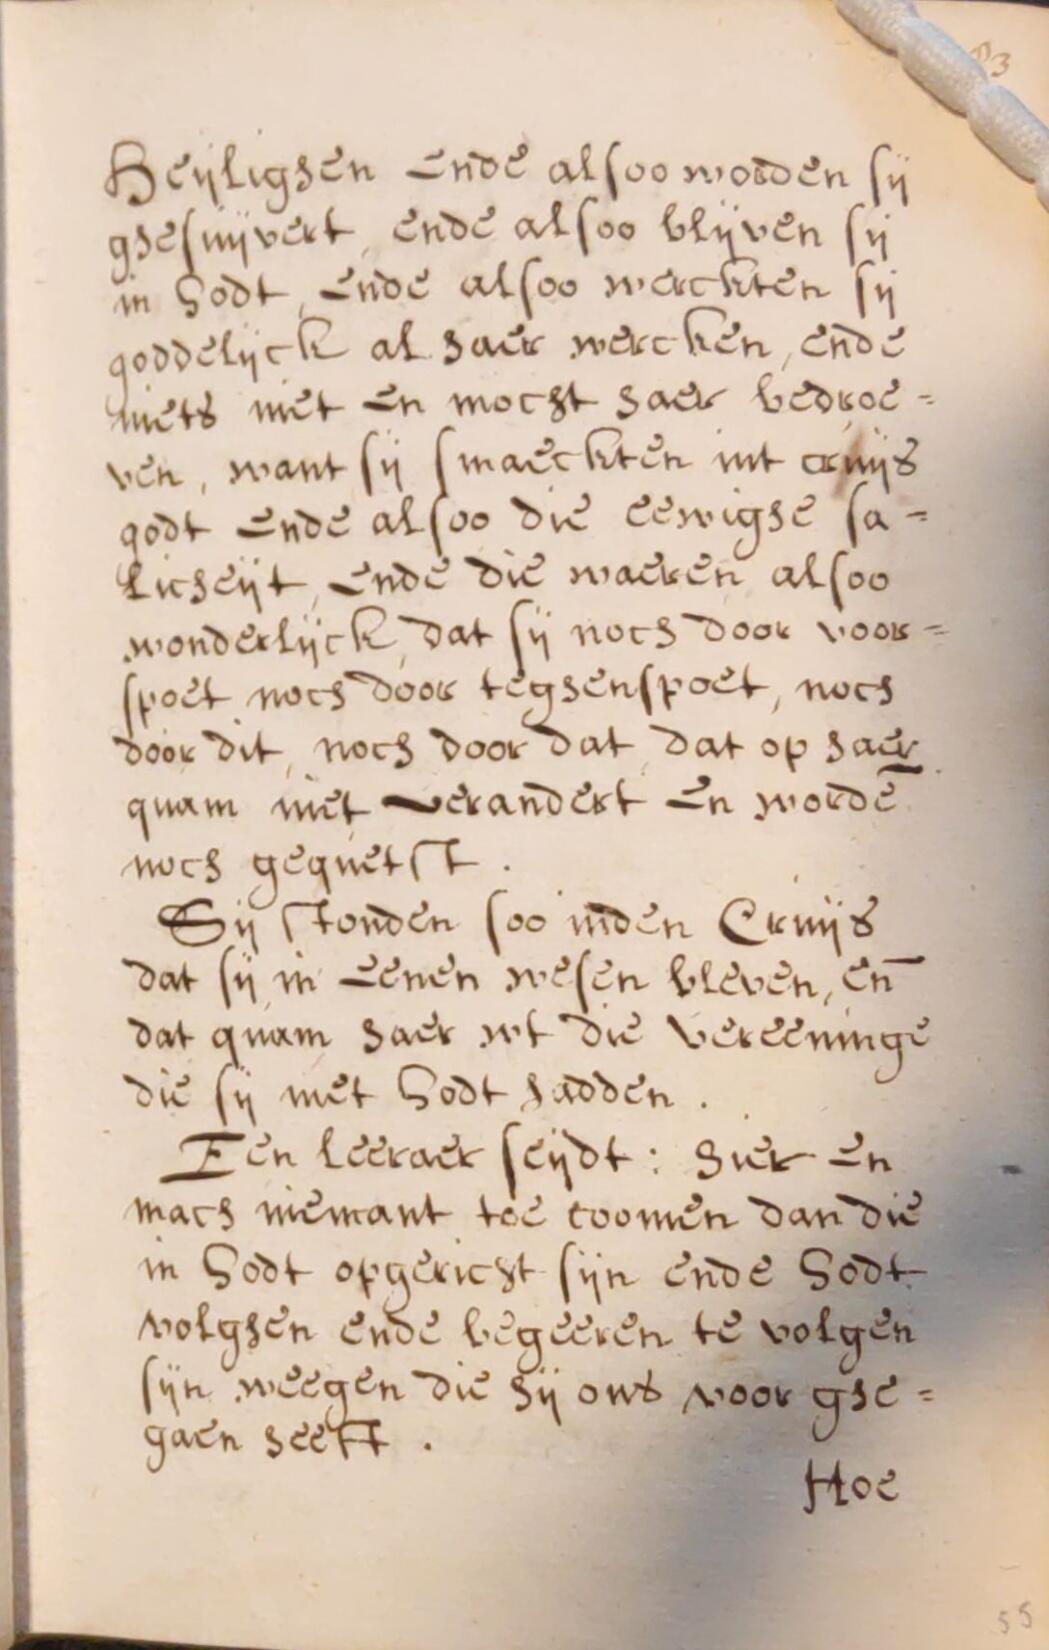 Heijlighen ende alsoo worden sij
ghesuijvert, ende alsoo blijven sij
in Godt, ende alsoo werckten sij
goddelijck al haer wercken, ende
niets niet en mocht haer bedroe=
ven, want sij smaeckten int cruijs
godt ende alsoo die eewighe sa=
licheijt, ende die waeren alsoo
wonderlijck, dat sij noch door voor=
spoet noch door teghenspoet, noch
door dit, noch door dat, dat op haer
quam niet verandert en wordē
noch gequetst.
Sij stonden soo inden Cruijs
dat sij in eenen wesen bleven, en̄
dat quam haer wt die vereeninge
die sij met Godt hadden.
Een leeraer seijdt: hier en
mach niemant toe coomen dan die
in Godt opgericht sijn ende Godt
volghen ende begeeren te volgen
sijn weegen die hij ons voor ghe=
gaen heeft.
Hoe
55